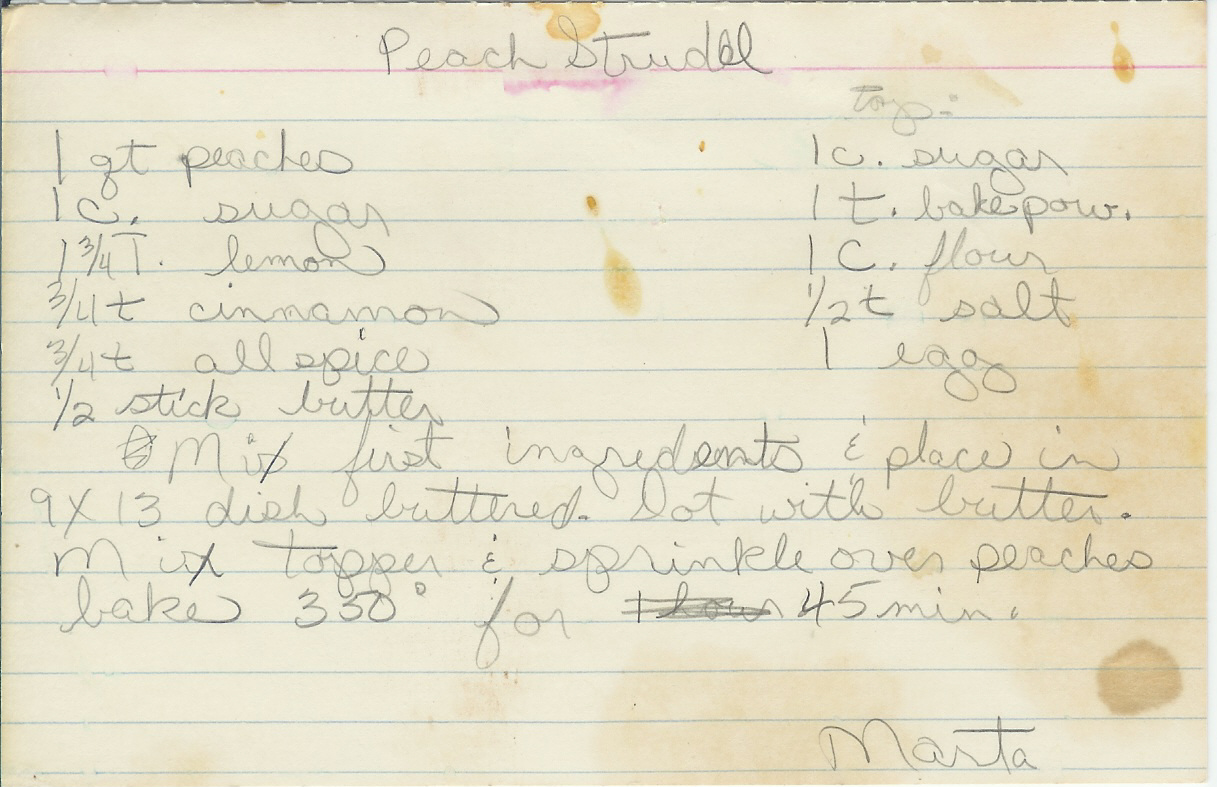 Peach Strudel
top:
1 qt peaches
1 c. sugar
1 3/4 T. lemon
3/4 t cinnamon
3/4 t all spice
1/2 stick butter
1 c. sugar
1 t. bake pow.
1 C. flour
1/2 t salt
1 egg
Mix first ingredients & place in
9 X 13 dish buttered. Dot with butter.
Mix topper & sprinkle over peaches
bake 350° for 1 hour 45 min.
Marta